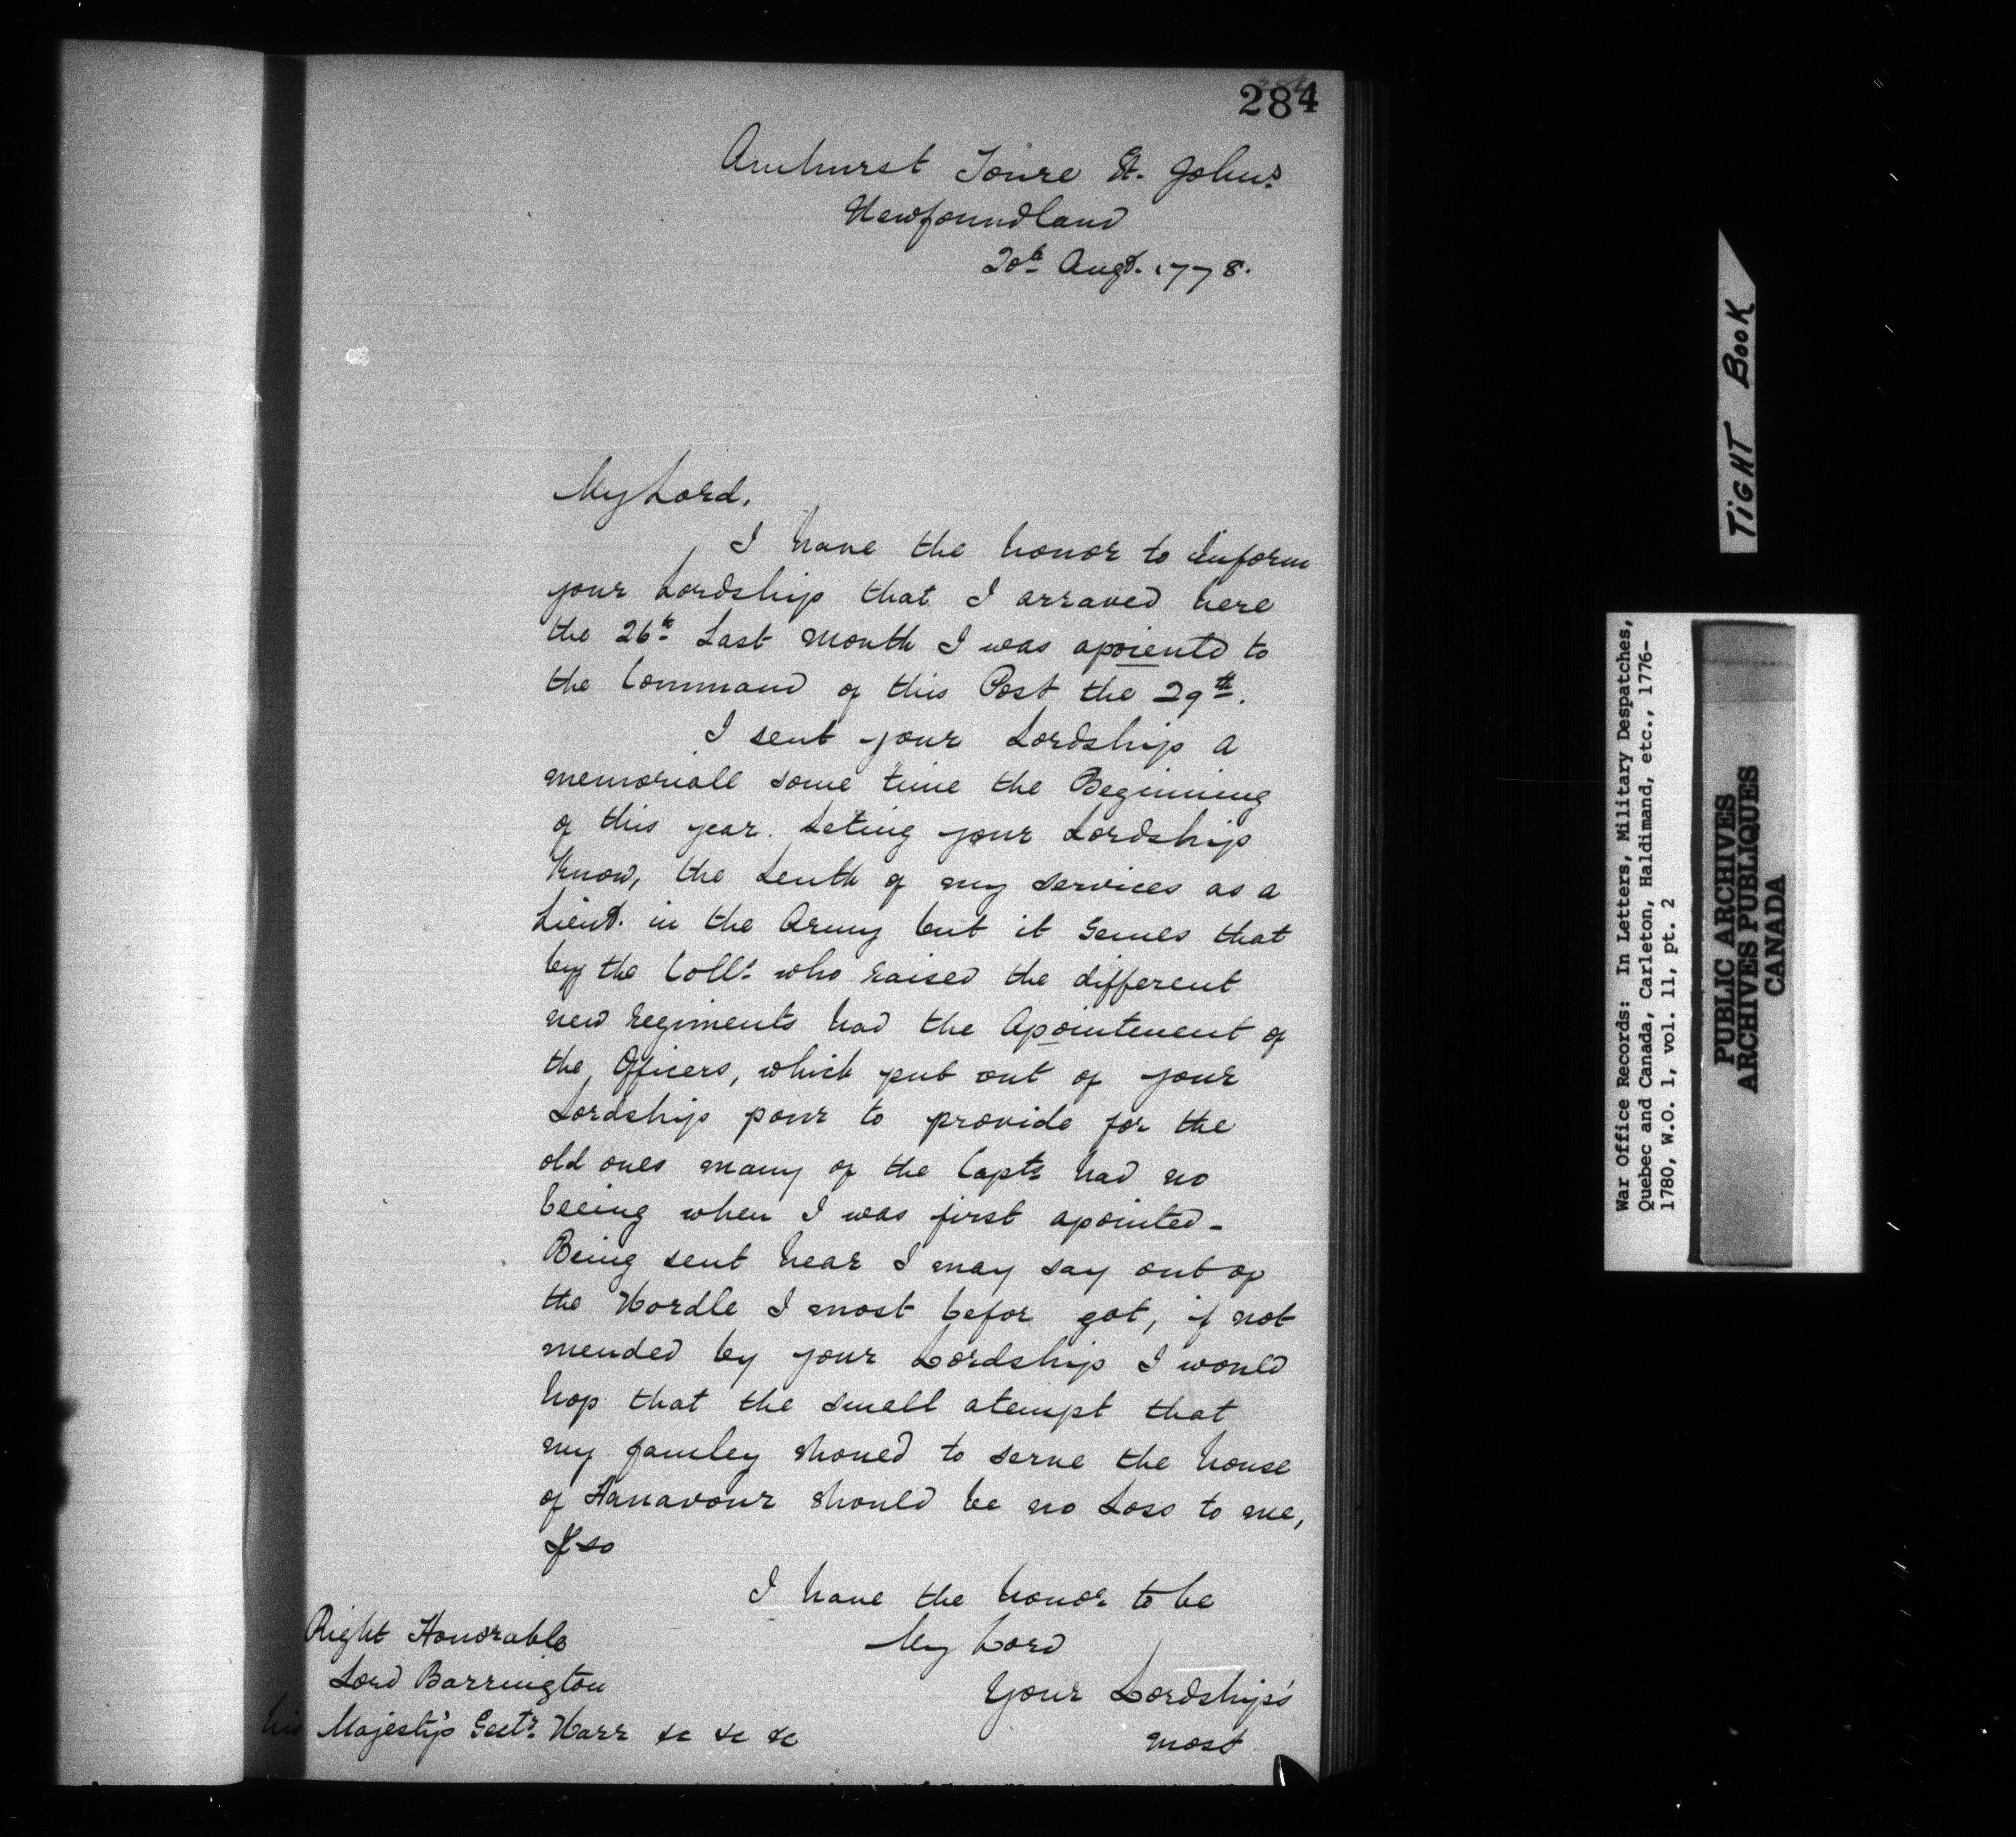 284
Amhurst Toure St. John's
Newfoundland
20th Augt. 1778.
My Lord,
I have the honor to Inform
your Lordship that I arraved here
the 26th Last Month I was apoientd to
the Command of this Post the 29th.
I sent your Lordship a
memoriall some time the Beginning
of this year. Leting your Lordship
Know, the Lenth of my Services as a
Lieut. in the Army but it Semes that
by the Colls. who raised the different
new regiments had the Apointement of
the Officers, which put out of your
Lordship pour to provide for the
old ones many of the Capts had no
beeing when I was first apointed -
Being sent hear I may say out of
the Wordle I most befor got, if not
mended by your Lordship I would
hop that the small atempt that
my famley shoued to serve the house
of Hanavour should be no Loss to me,
If so
I have the honor to be
My Lord
Your Lordship's
most
Right Honorable
Lord Barrington
his Majesty's Sectr. Warr &c &c &c
TIGHT BOOK
War Office Records: In Letters, Military Despatches,
Quebec and Canada, Carleton, Haldimand, etc., 1776-
1780, W.O. 1, vol. 11, pt. 2
PUBLIC ARCHIVES
ARCHIVES PUBLIQUES
CANADA